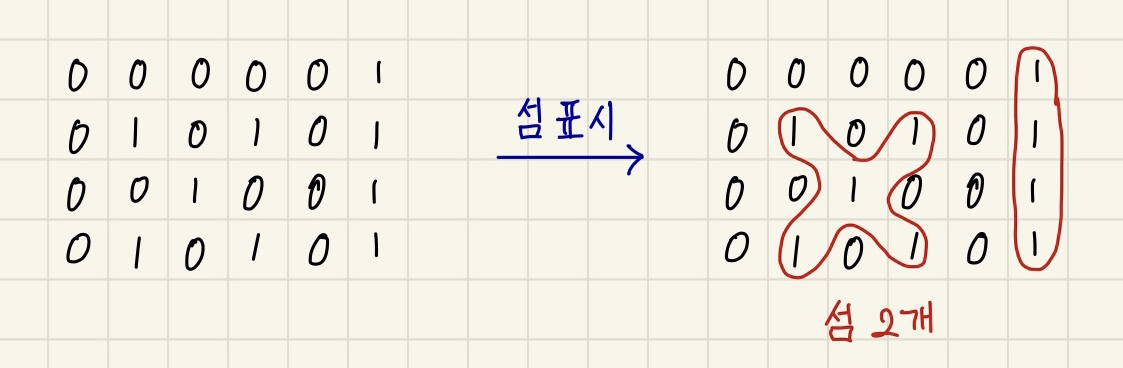 0 0 0 0 0 1
0 1 0 1 0 1
0 0 1 0 0 1
0 1 0 1 0 1
섬 표시
0 0 0 0 0 1
0 1 0 1 0 1
0 0 1 0 0 1
0 1 0 1 0 1
섬 2개